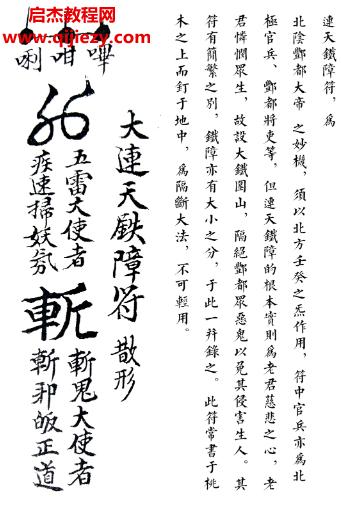 启杰教程网
www.qijie.cc
連天鐵障符，為
北陰酆都大帝 之妙機，須以北方壬癸之炁作用，符中官兵亦為北
極官兵、酆都將吏等，但連天鐵障的根本實則為老君慈悲之心，老
君憐憫眾生，故設大鐵圍山，隔絕酆都眾惡鬼以免其侵害生人。其
符有簡繁之別，鐵障亦有大小之分，于此一并錄之。 此符常書于桃
木之上而釘于地中，為隔斷大法，不可輕用。
大連天鉄障符 散形
嗶
呾
唎
五雷大使者
疾速掃妖氛
斬
斬鬼大使者
斬邪皈正道